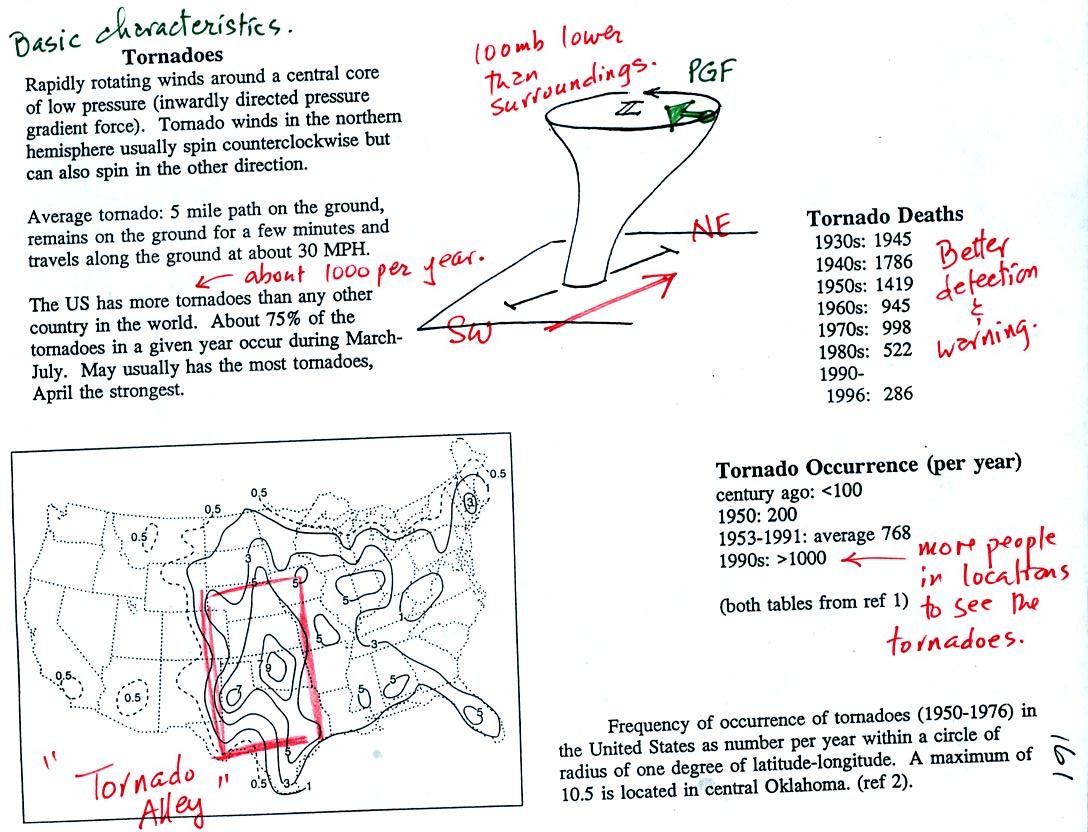 Basic characteristics.
Tornadoes
Rapidly rotating winds around a central core
of low pressure (inwardly directed pressure
gradient force). Tornado winds in the northern
hemisphere usually spin counterclockwise but
can also spin in the other direction.
Average tornado: 5 mile path on the ground,
remains on the ground for a few minutes and
travels along the ground at about 30 MPH.
about 1000 per year.
The US has more tornadoes than any other
country in the world. About 75% of the
tornadoes in a given year occur during March-
July. May usually has the most tornadoes,
April the strongest.
100mb lower
than
surroundings.
PGF
L
NE
SW
Tornado Deaths
1930s: 1945
1940s: 1786
1950s: 1419
1960s: 945
1970s: 998
1980s: 522
1990-
1996: 286
Better
detection
&
warning.
Tornado Occurrence (per year)
century ago: <100
1950: 200
1953-1991: average 768
1990s: >1000
(both tables from ref 1)
more people
in locations
to see the
tornadoes.
0.5
0.5
0.5
1
3
0.5
3
5
5
5
5
3
9
7
0.5
0.5
5
5
5
5
0.5
3
1
"Tornado
Alley"
Frequency of occurrence of tornadoes (1950-1976) in
the United States as number per year within a circle of
radius of one degree of latitude-longitude. A maximum of
10.5 is located in central Oklahoma. (ref 2).
161